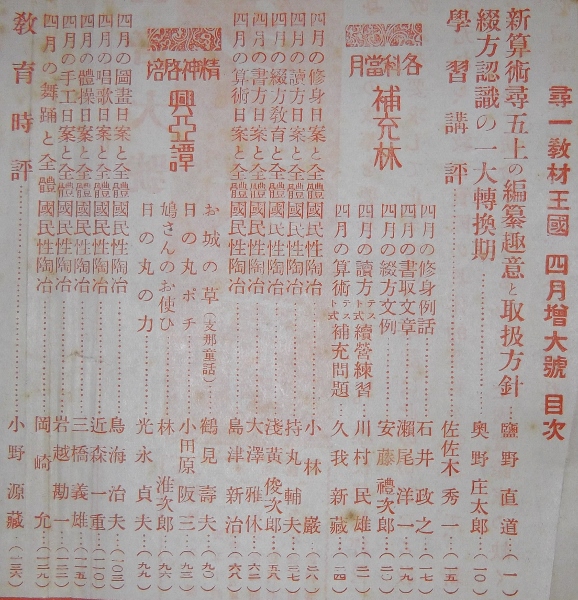 尋一教材王國 四月增大號 目次
新算術尋五上の編纂趣意と取扱方針…鹽野直道…(一)
綴方認識の一大轉換期…奧野庄太郎…(一〇)
學習講評…佐佐木秀一…(一五)
各科當月
補充林
四月の修身例話…石井政之…(一七)
四月の書取文章…瀨尾洋一…(一九)
四月の綴方文例…安藤禮次郎…(二〇)
四月の讀方テスト式續營練習…川村民雄…(二一)
四月の算術テスト式補充問題…久我新藏…(二四)
四月の修身日案と全體國民性陶冶…小林巖…(二八)
四月の讀方日案と全體國民性陶冶…持丸輔夫…(三七)
四月の綴方教育と全體國民性陶冶…淺黃俊次郎…(五八)
四月の書方日案と全體國民性陶冶…大澤雅休…(六二)
四月の算術日案と全體國民性陶冶…島津新治…(六八)
精神啓培
興亞譚
お城の草(支那童話)…鶴見壽夫…(九〇)
日の丸ポチ…小田原阪三…(九三)
鳩さんのお使ひ…林次郎…(九六)
日の丸の力…光永貞夫…(九九)
四月の圖畫日案と全體國民性陶冶…鳥海治夫…(一〇三)
四月の唱歌日案と全體國民性陶冶…近森一重…(一一〇)
四月の體操日案と全體國民性陶冶…三橋義雄…(一一五)
四月の手工日案と全體國民性陶冶…岩越勘一…(一二二)
四月の舞踊と全體國民性陶冶…岡崎允…(一二九)
教育時評…小野源藏…(一三六)